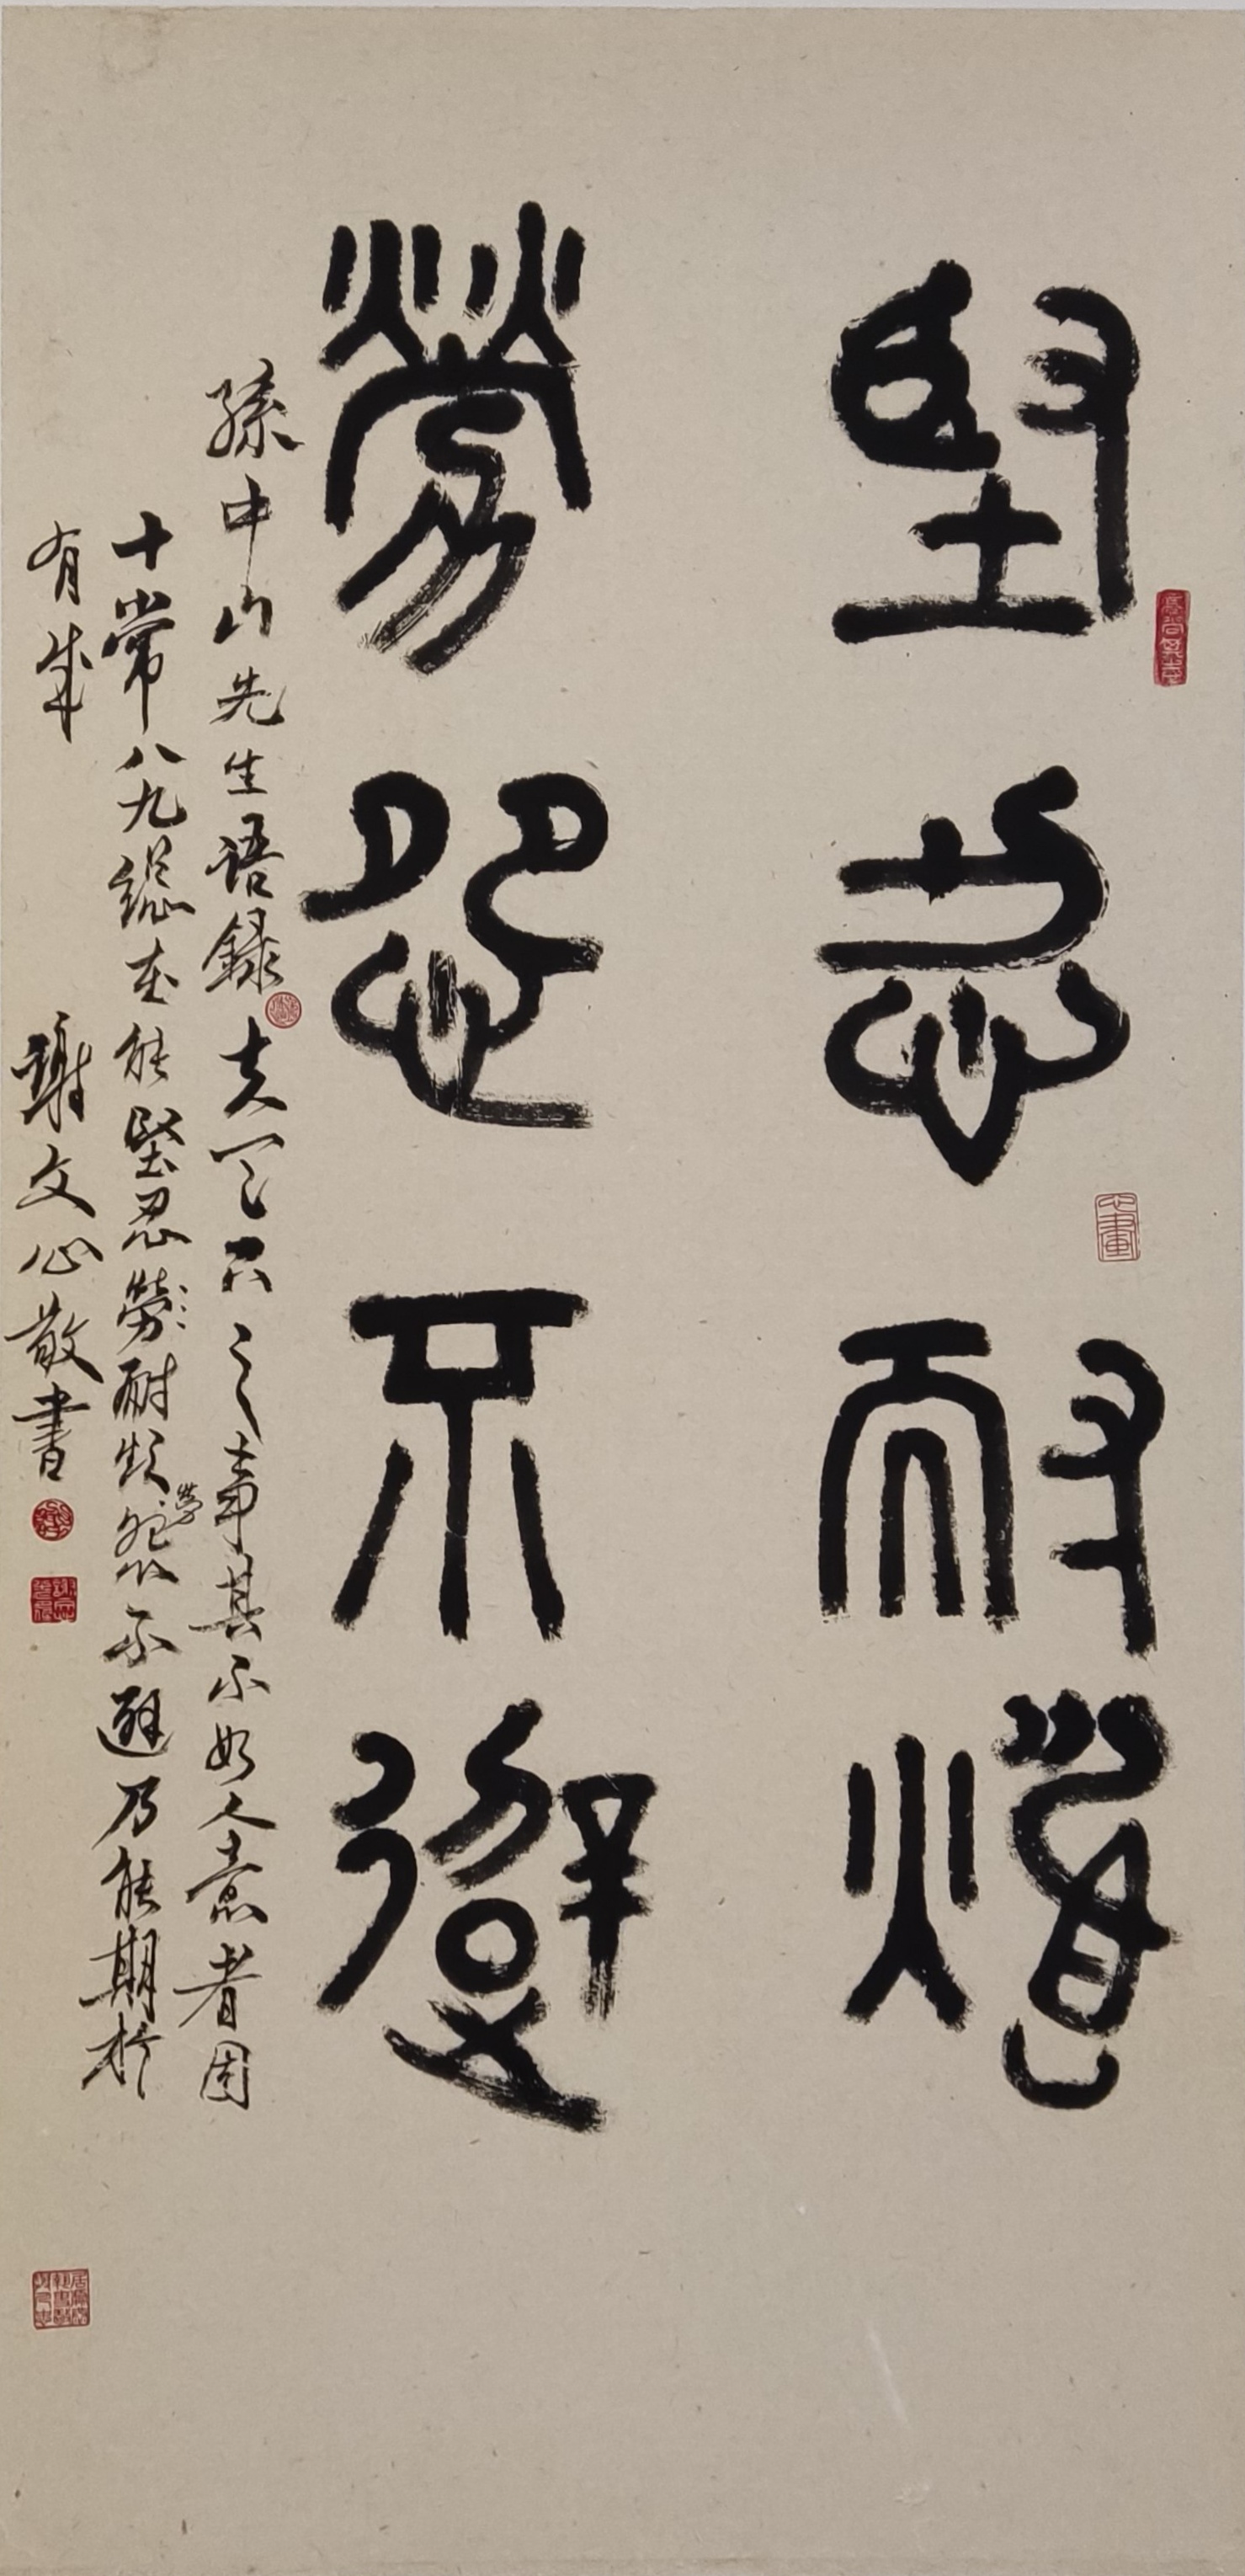 高尚其志
堅忍耐煩
心畫
勞怨不避
孫中山先生語錄夫天下之事其不如人意者固
十常八九總在能堅忍勞耐煩勞怨不避乃能期於
有成 謝文心敬書